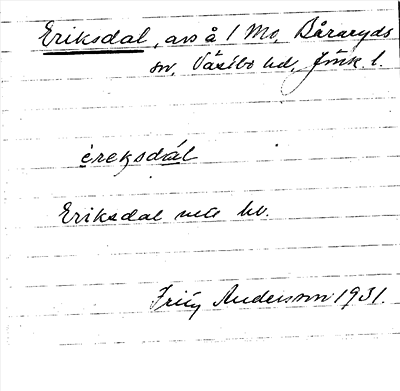 Eriksdal, avs å 1 Mo, Båraryds
sn, Västbo hd, Jönk. l.
èreksdál
Eriksdal
Andersson 1931.